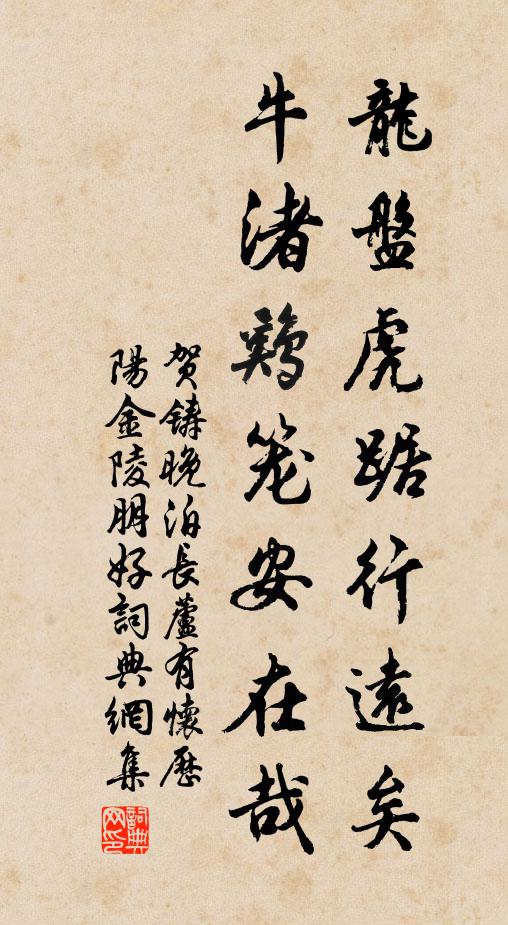 龍盤虎踞行遠矣
牛渚鷄笼安在哉
贺鑄晚泊長蘆有懷歷
陽金陵朋好詞典網集
詞典
网印